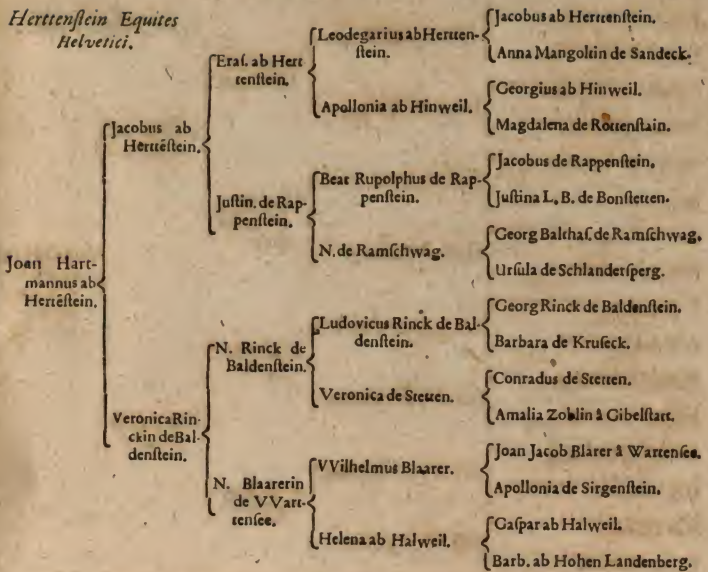 Herttenſtein Equites
Helvetici.
Joan Hart-
mannus ab
Hertēſtein.
Jacobus ab
Herttēſtein.
Veronica Rin-
ckin de Bal-
denſtein.
Eraſ. ab Hert
tenſtein.
Juſtin. de Rap-
penſtein.
N. Rinck de
Baldenſtein.
N. Blaarerin
de VVart-
tenſee.
Leodegarius ab Herten-
ſtein.
Apollonia ab Hinweil.
Beat Rupolphus de Rap-
penſtein.
N. de Ramſchwag.
Ludovicus Rinck de Bal-
denſtein.
Veronica de Stetten.
VVilhelmus Blaarer.
Helena ab Halweil.
Jacobus ab Herttenſtein.
Anna Mangoltin de Sandeck.
Georgius ab Hinweil.
Magdalena de Rottenſtain.
Jacobus de Rappenſtein.
Juſtina L. B. de Bonſtetten.
Georg Balthaſ. de Ramſchwag.
Urſula de Schlanderſperg.
Georg Rinck de Baldenſtein.
Barbara de Kruſeck.
Conradus de Stetten.
Amalia Zoblin à Gibelſtatt.
Joan Jacob Blarer à Wartenſee.
Apollonia de Sirgenſtein.
Gaſpar ab Halweil.
Barb. ab Hohen Landenberg.